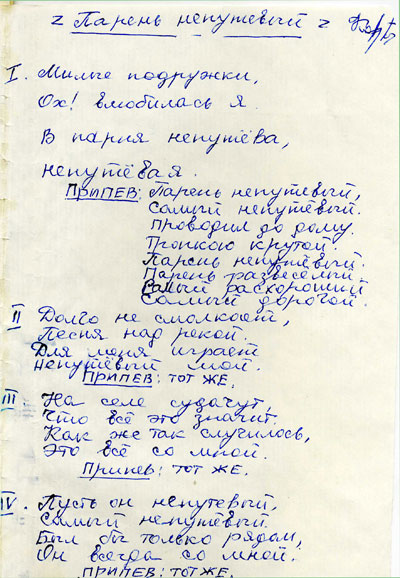 « Парень непутевый »
I. Милые подружки,
Ох! влюбилась я.
В парня непутёва,
непутёвая.
ПРИПЕВ: Парень непутевый,
Самый непутёвый.
Проводил до дому
Тропкою крутой.
Парень непутёвый.
Парень развеселый
Самый расхороший
Самый дорогой.
II Долго не смолкает,
Песня над рекой.
Для меня играет
непутёвый мой.
ПРИПЕВ: ТОТ ЖЕ.
III На селе судачут,
Что всё это значит.
Как же так случилось,
Это всё со мной.
Припев: ТОТ ЖЕ.
IV. Пусть он непутевый,
Самый непутевый.
Был бы только рядом,
Он всегда со мной.
ПРИПЕВ: ТОТ ЖЕ.